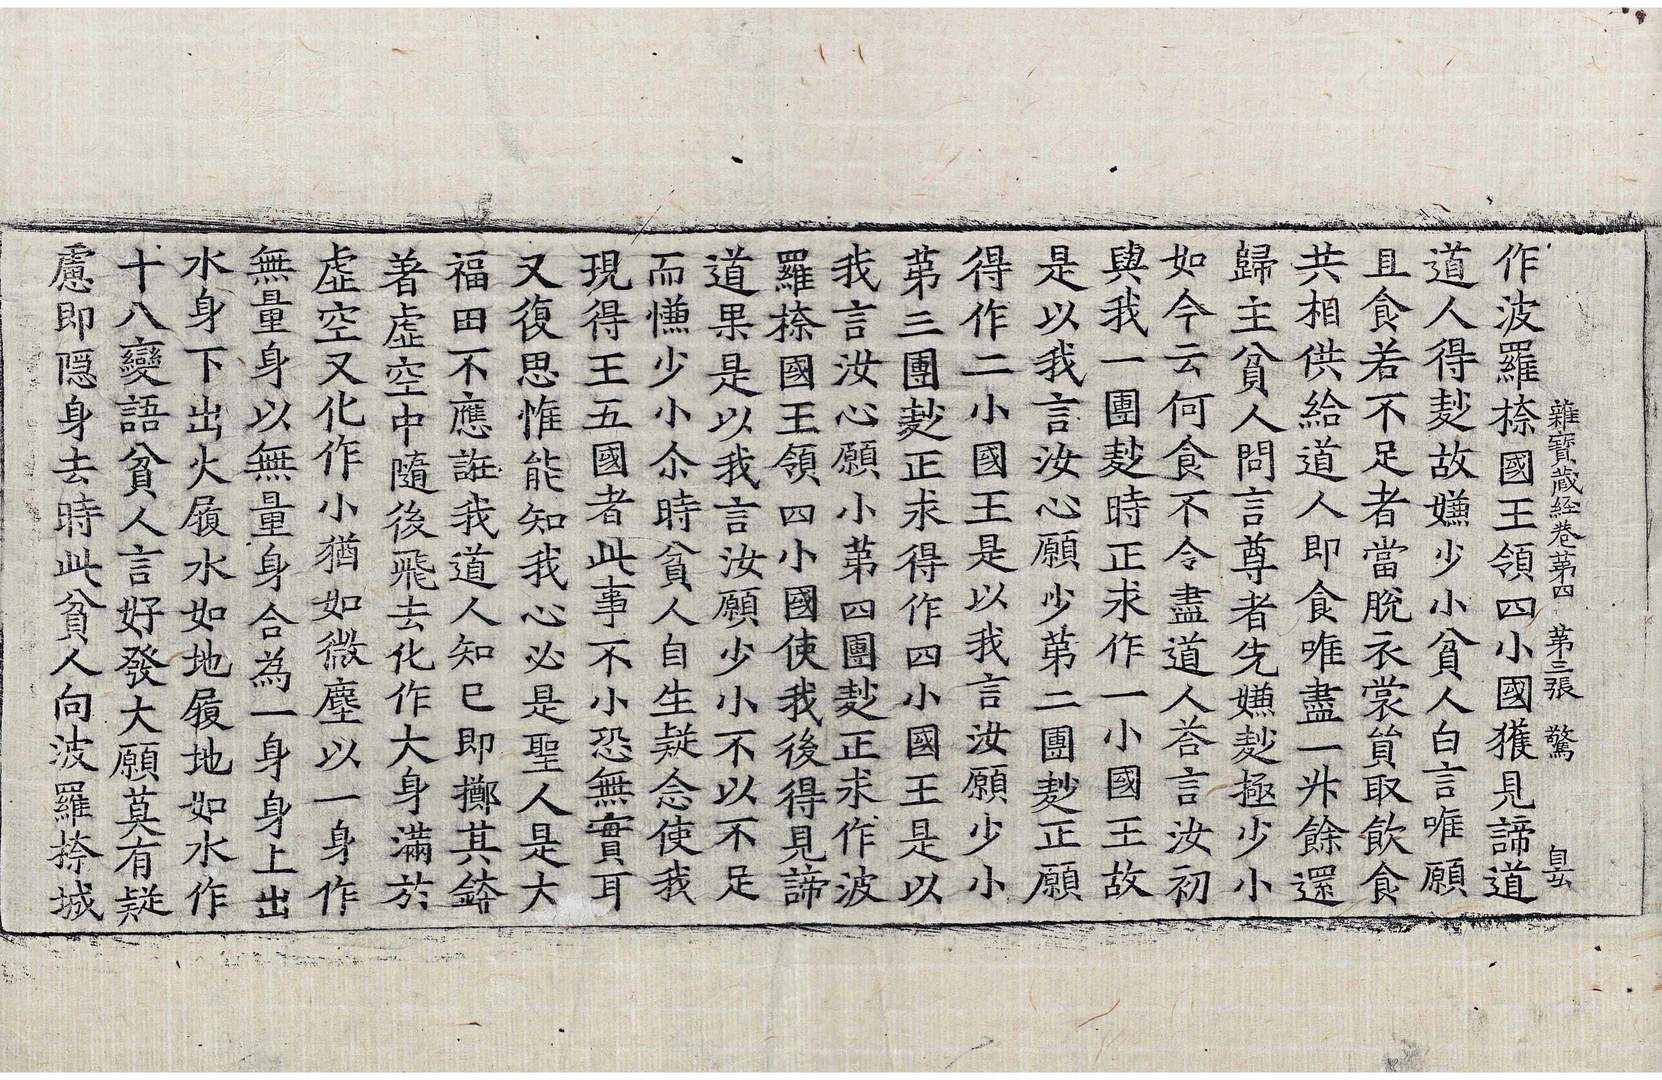 雜寶藏經卷第四 第三張 驚
作波羅㮈國王領四小國獲見諦道
道人得麨故嫌少小貧人白言唯願
且食若不足者當脫衣裳貿取飲食
共相供給道人即食唯盡一升餘還
歸主貧人問言尊者先嫌麨極少小
如今云何食不令盡道人荅言汝初
與我一團麨時正求作一小國王故
是以我言汝心願少第二團麨正願
得作二小國王是以我言汝願少小
第三團麨正求得作四小國王是以
我言汝心願小第四團麨正求作波
羅㮈國王領四小國使我後得見諦
道果是以我言汝願少小不以不足
而慊少小尒時貧人自生疑念使我
現得王五國者此事不小恐無實耳
又復思惟能知我心必是聖人是大
福田不應誑我道人知已即擲其鉢
著虛空中隨後飛去化作大身滿於
虛空又化作小猶如微塵以一身作
無量身以無量身合為一身身上出
水身下出火履水如地履地如水作
十八變語貧人言好發大願莫有疑
慮即隱身去時此貧人向波羅㮈城